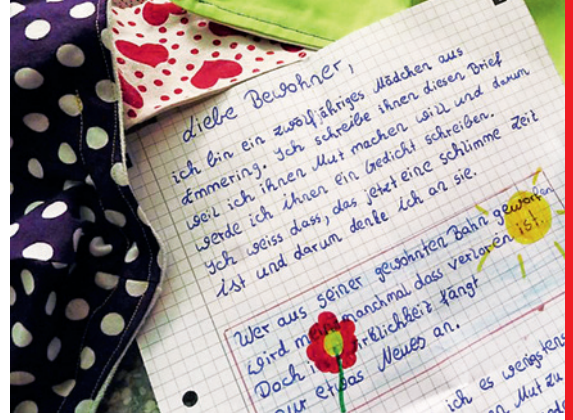 Liebe Bewohner,
ich bin ein zwölfjähriges Mädchen aus
Emmering. Ich schreibe ihnen diesen Brief
weil ich ihnen Mut machen will und darum
werde ich ihnen ein Gedicht schreiben.
Ich weiss dass, das jetzt eine schlimme Zeit
ist und darum denke ich an sie.
Wer aus seiner gewohnten Bahn geworfen
wird manchmal dass verloren ist.
Doch in Wirklichkeit fängt
nur etwas Neues an.
ich es wenigstens
Mut zu